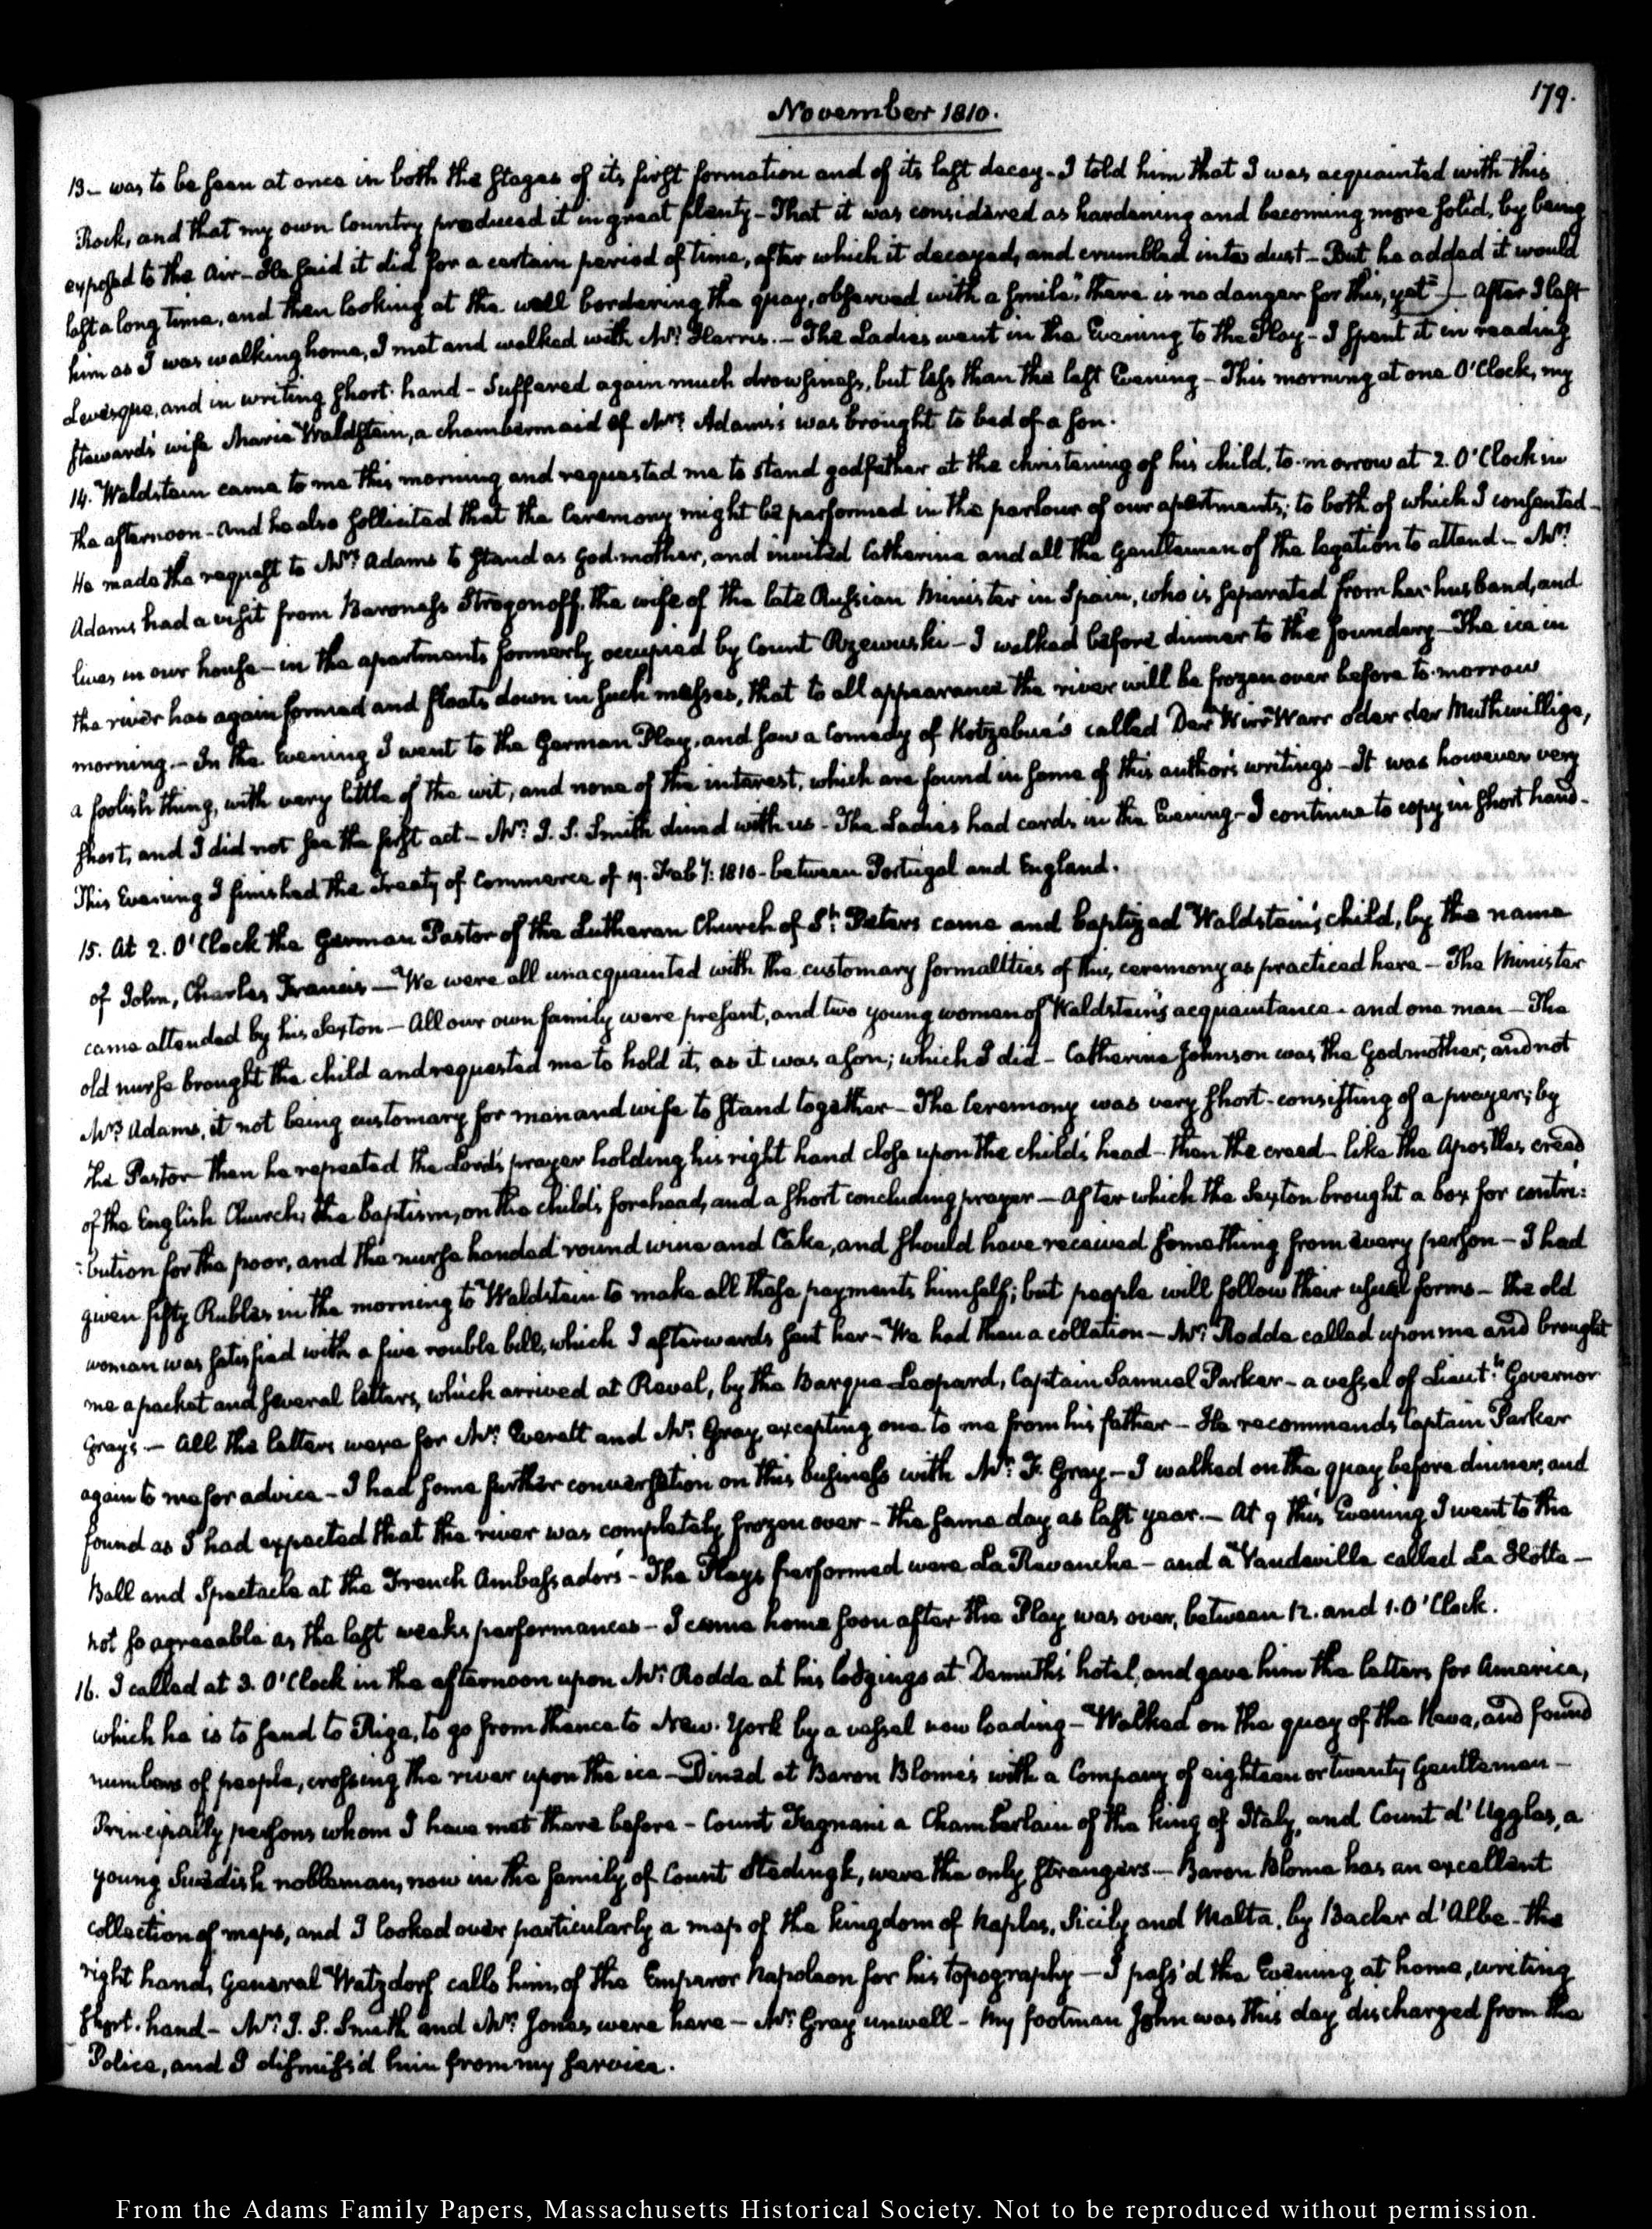 179.
November 1810.
13 — was to be seen at once in both the stages of its first formation and of its last decay — I told him that I was acquainted with this
Rock, and that my own Country produced it in great plenty — That it was considered as hardening and becoming more solid, by being
exposed to the air — He said it did for a certain period of time, after which it decayed, and crumbled into dust — But he added it would
last a long time, and then looking at the wall bordering the quay, observed with a smile, "there is no danger for this, yet" — After I left
him as I was walking home, I met and walked with Mr. Harris. — The Ladies went in the Evening to the Play — I spent it in reading
Levesque, and in writing short-hand — Suffered again much drowsiness, but less than the last Evening — This morning at one O'Clock, my
steward's wife Maria Waldstein, a chambermaid of Mrs. Adams's was brought to bed of a son.
14. Waldstein came to me this morning and requested me to stand godfather at the christening of his child, to-morrow at 2. O'Clock in
the afternoon — and he also sollicited that the Ceremony might be performed in the parlour of our apartments; to both of which I consented —
He made the request to Mrs. Adams to stand as god-mother, and invited Catherine and all the Gentlemen of the legation to attend — Mrs.
Adams had a visit from Baroness Strogonoff, the wife of the late Russian Minister in Spain, who is separated from her husband, and
lives in our house — in the apartments formerly occupied by Count Rzewuski — I walked before dinner to the foundery — The ice in
the river has again formed and floats down in such masses, that to all appearance the river will be frozen over before to-morrow
morning. — In the Evening I went to the German Play, and saw a Comedy of Kotzebue's called Der Wirr Warr oder der Muthwillige,
a foolish thing, with very little of the wit, and none of the interest, which are found in some of this author's writings — It was however very
short, and I did not see the first act — Mr. J. S. Smith dined with us — The Ladies had cards in the Evening — I continue to copy in short hand —
This Evening I finished the Treaty of Commerce of 19. Feby: 1810 — between Portugal and England.
15. At 2. O'Clock the German Pastor of the Lutheran Church of St. Peters came and baptized Waldstein's child, by the name
of John, Charles Francis — We were all unacquainted with the customary formalities of this ceremony as practiced here — The Minister
came attended by his Sexton — All our own family were present, and two young women of Waldstein's acquaintance — and one man — The
old nurse brought the child and requested me to hold it, as it was a son; which I did — Catherine Johnson was the Godmother; and not
Mrs. Adams, it not being customary for man and wife to stand together — The Ceremony was very short — consisting of a prayer; by
the Pastor — then he repeated the Lord's prayer holding his right hand close upon the child's head — then the creed — like the Apostles creed
of the English Church; the baptism, on the child's forehead, and a short concluding prayer — After which the Sexton brought a box for contri:
:bution for the poor, and the nurse handed round wine and Cake, and should have received something from every person — I had
given fifty Rubles in the morning to Waldstein to make all these payments himself; but people will follow their usual forms — the old
woman was satisfied with a five rouble bill, which I afterwards sent her — We had then a collation — Mr. Rodde called upon me and brought
me a packet and several letters, which arrived at Reval, by the Barque Leopard, Captain Samuel Parker — a vessel of Lieutt. Governor
Gray's — All the letters were for Mr. Everett and Mr. Gray, excepting one to me from his father — He recommends Captain Parker
again to me for advice — I had some further conversation on this business with Mr. F. Gray — I walked on the quay before dinner, and
found as I had expected that the river was completely frozen over — the same day as last year. — At 9 this Evening I went to the
Ball and Spectacle at the French Ambassador's — The Plays performed were La Revanche — and a Vaudeville called La Hotte —
not so agreeable as the last weeks performances — I came home soon after the Play was over, between 12. and 1. O'Clock.
16. I called at 3. O'Clock in the afternoon upon Mr. Rodde at his lodgings at Demuth's hotel, and gave him the letters for America,
which he is to send to Riga, to go from thence to New-York by a vessel now loading — Walked on the quay of the Neva, and found
numbers of people, crossing the river upon the ice — Dined at Baron Blome's with a Company of eighteen or twenty Gentlemen —
Principally persons whom I have met there before — Count Fagnani a Chamberlain of the King of Italy, and Count d'Ugglas, a
young Swedish nobleman, now in the family of Count Stedingk, were the only strangers — Baron Blome has an excellent
collection of maps, and I looked over particularly a map of the Kingdom of Naples, Sicily and Malta, by Bacler d'Albe — the
right hand, General Watzdorf calls him, of the Emperor Napoleon for his topography — I pass'd the Evening at home, writing
short-hand — Mr. J. S. Smith and Mr. Jones were here — Mr. Gray unwell — My footman John was this day discharged from the
Police, and I dismiss'd him from my service.
From the Adams Family Papers, Massachusetts Historical Society. Not to be reproduced without permission.